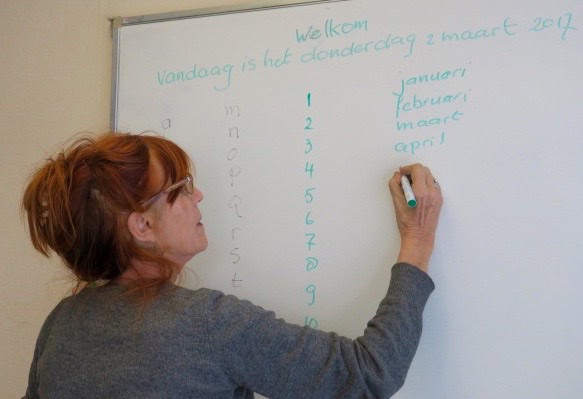 Welkom
vandaag is het donderdag 2 maart 2017
a
m
n
o
p
q
r
s
t
1
2
3
4
5
6
7
8
9
10
januari
februari
maart
april